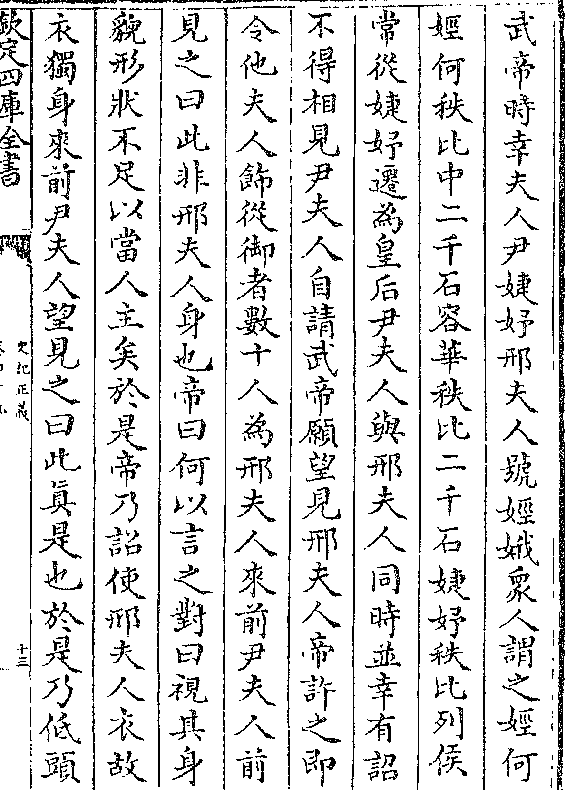 武帝時幸夫人尹婕妤邢夫人號娙娥衆人謂之娙何
娙何秩比中二千石容華秩比二千石婕妤秩比列侯
常從婕妤遷為皇后尹夫人與邢夫人同時並幸有詔
不得相見尹夫人自請武帝願望見邢夫人帝許之即
令他夫人飾從御者數十人為邢夫人來前尹夫人前
見之曰此非邢夫人身也帝曰何以言之對曰視其身
貌形狀不足以當人主矣於是帝乃詔使邢夫人衣故
衣獨身來前尹夫人望見之曰此真是也於是乃低頭
欽定四庫全書
史記正義
十三